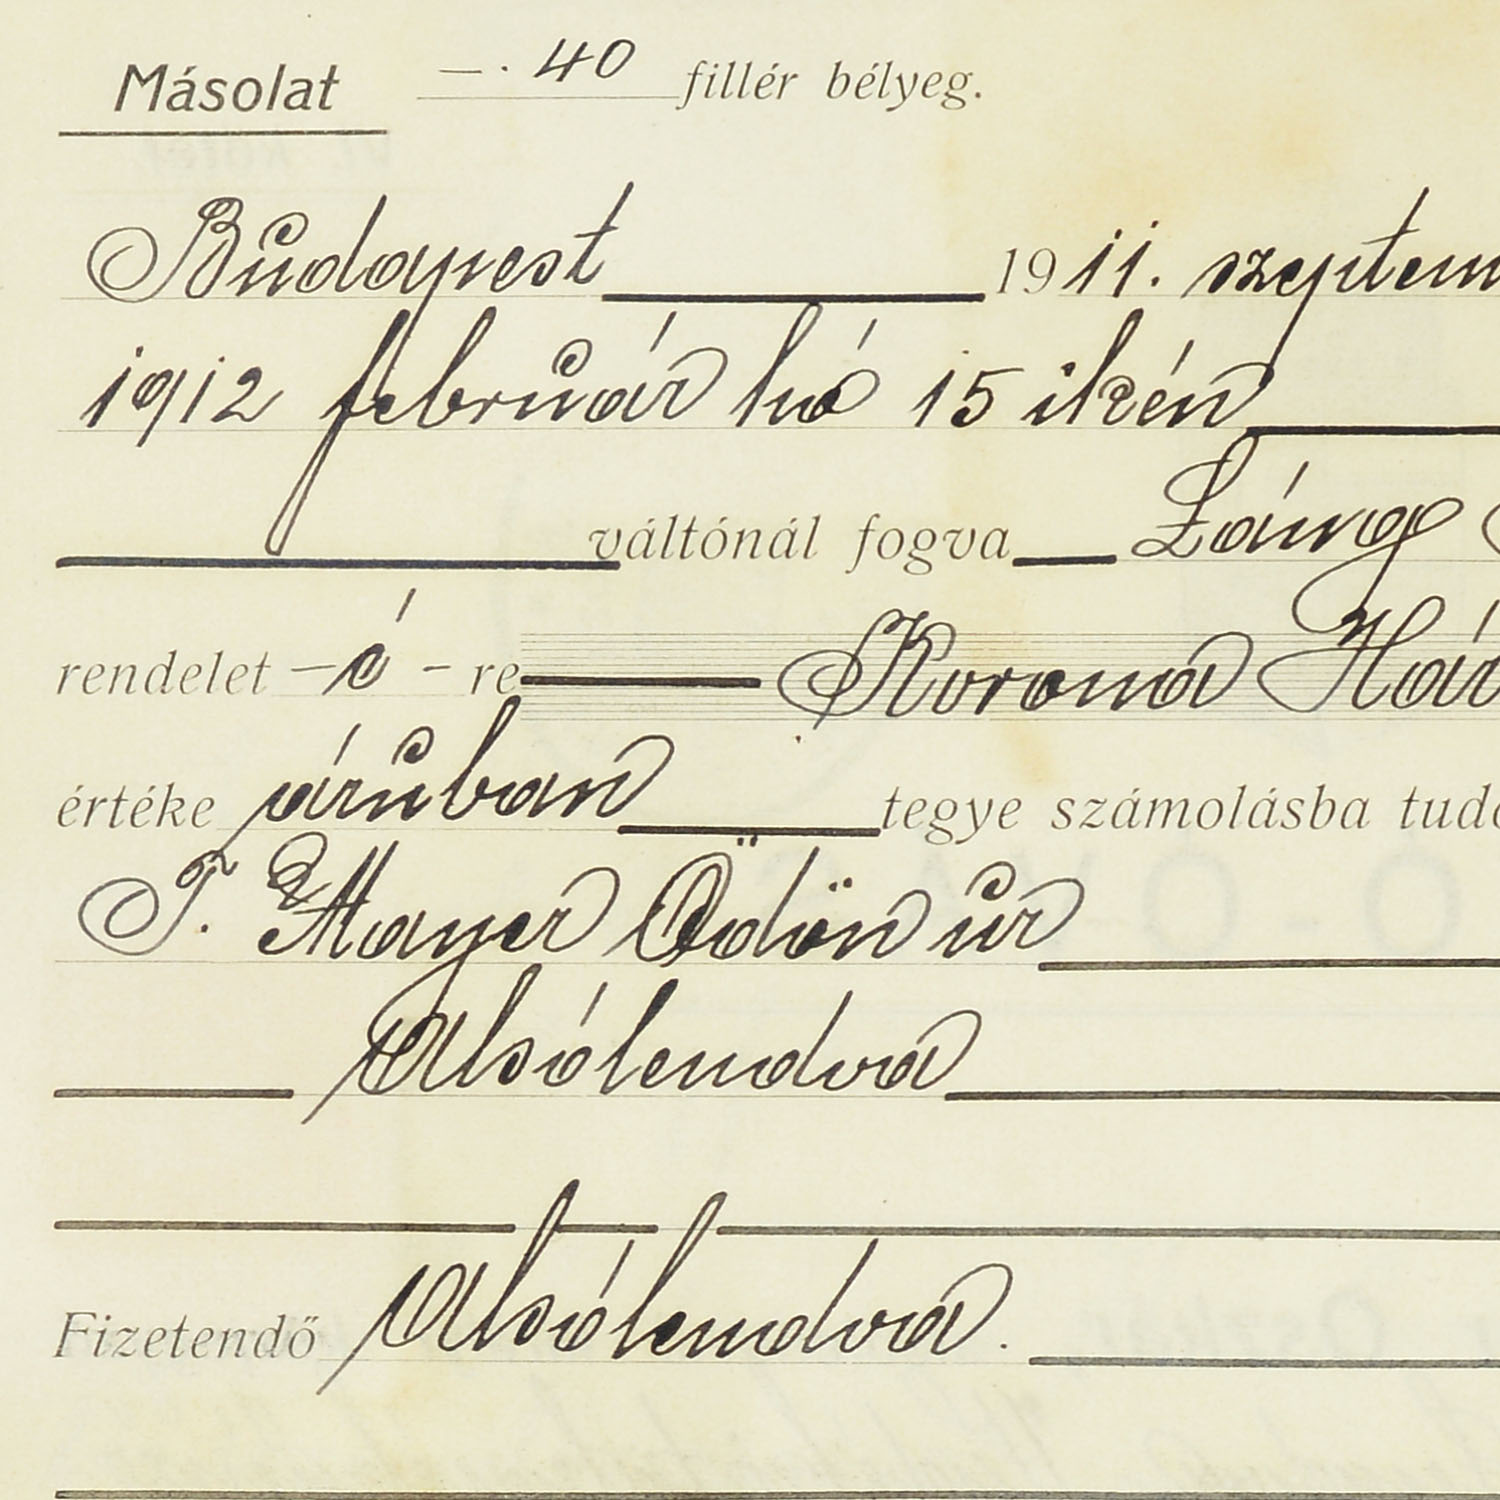 Másolat —. 40 fillér bélyeg.
Budapest 1911. szeptem
1912 február hó 15 ikén
váltónál fogva Láng
rendelet — ó - re Korona Hár
értéke áruban tegye számolásba tudó
T. Mayer Ödön úr
Alsólendva
Fizetendő Alsólendva.